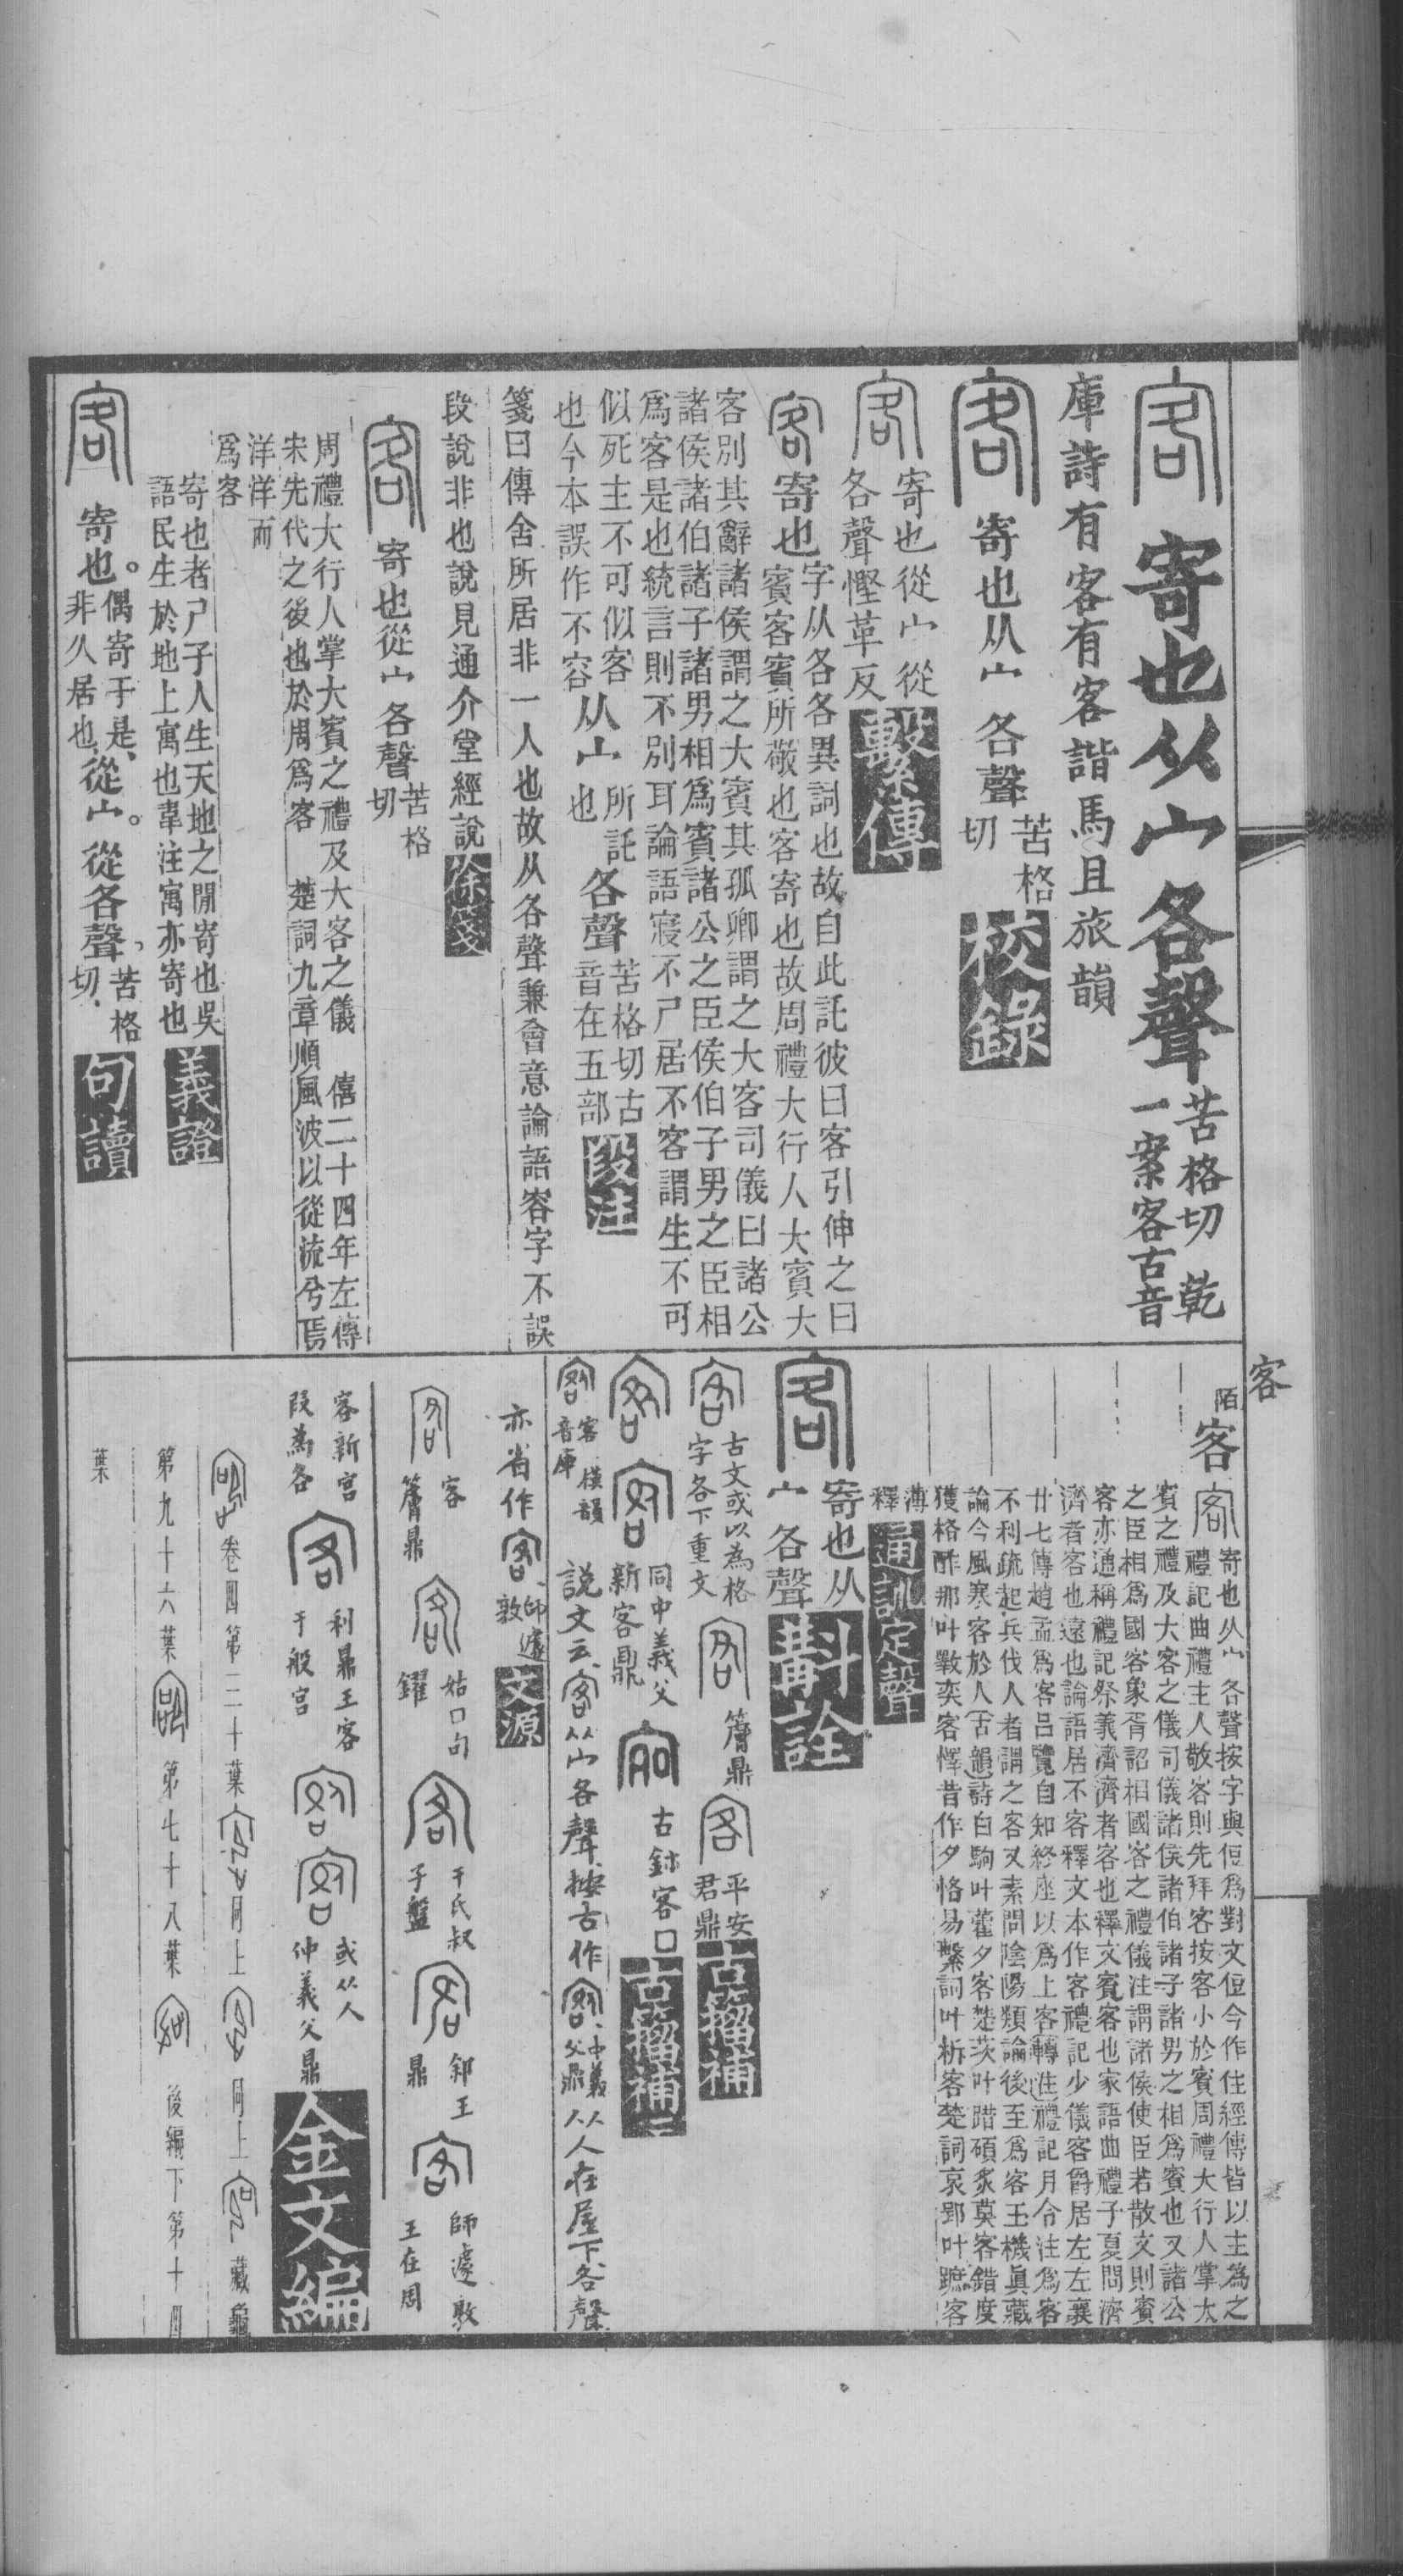 客
寄也从宀各聲苦格切 乾
一案客古音
庫詩有客有客諧馬且旅韻
寄也从宀各聲苦格
切
校錄
寄也從宀從
各聲慳革反
繫傳
寄也字从各各異詞也故自此託彼曰客引伸之曰
賓客賓所敬也客寄也故周禮大行人大賓大
客別其辭諸侯謂之大賓其孤卿謂之大客司儀曰諸公
諸侯諸伯諸子諸男相爲賓諸公之臣侯伯子男之臣相
爲客是也統言則不別耳論語寢不尸居不客謂生不可
似死主不可似客
也今本誤作不容
从宀所託
也
各聲苦格切古
音在五部
段注
箋曰傳舍所居非一人也故从各聲兼會意論語容字不誤
段說非也說見通介堂經說
徐箋
寄也從宀各聲苦格
切
周禮大行人掌大賓之禮及大客之儀 僖二十四年左傳
宋先代之後也於周爲客 楚詞九章順風波以從流兮焉
洋洋而
爲客
寄也者尸子人生天地之閒寄也吳
語民生於地上寓也韋注寓亦寄也
義證
寄也偶寄于是
非久居也從宀從各聲苦格
切
句讀
陌
客
寄也从宀各聲按字與侸爲對文侸今作住經傳皆以主為之
禮記曲禮主人敬客則先拜客按客小於賓周禮大行人掌大
賓之禮及大客之儀司儀諸侯諸伯諸子諸男之相爲賓也又諸公
之臣相爲國客象胥詔相國客之禮儀注謂諸侯使臣若散文則賓
客亦通稱禮記祭義濟濟者客也釋文賓客也家語曲禮子夏問濟
濟者客也遠也論語居不客釋文本作客禮記少儀客爵居左左襄
廿七傳趙孟爲客呂覽自知終座以爲上客轉注禮記月令注爲客
不利疏起兵伐人者謂之客又素問陰陽類論後至爲客玉機眞藏
論今風寒客於人古韻詩白駒叶藿夕客楚茨叶踖碩炙莫客錯度
獲格酢那叶斁奕客懌昔作夕恪易繫詞叶柝客楚詞哀郢叶蹠客
薄
釋
通訓定聲
寄也从
宀各聲
斠詮
古文或以為格
字各下重文
簷鼎
平安
君鼎
古籀補
同中義父
新客鼎
古鉢客口
古籀補
客模韻
音庫
說文云客从宀各聲按古作中義
父鼎从人在屋下各聲
亦省作師遽
敦
文源
客
簷鼎
姑口句
鑃
干氏叔
子盤
邾王
鼎
師遽敦
王在周
客新宮
段為各
利鼎王客
于般宮
或从人
仲義父鼎
金文編
卷四第二十葉同上同上藏龜
第九十六葉第七十八葉後編下第十四
葉